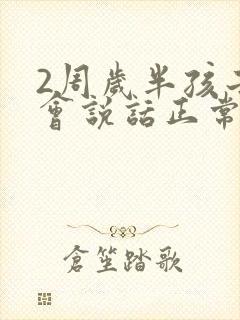 2周歲半孩
會説話正常
倉笙踏歌